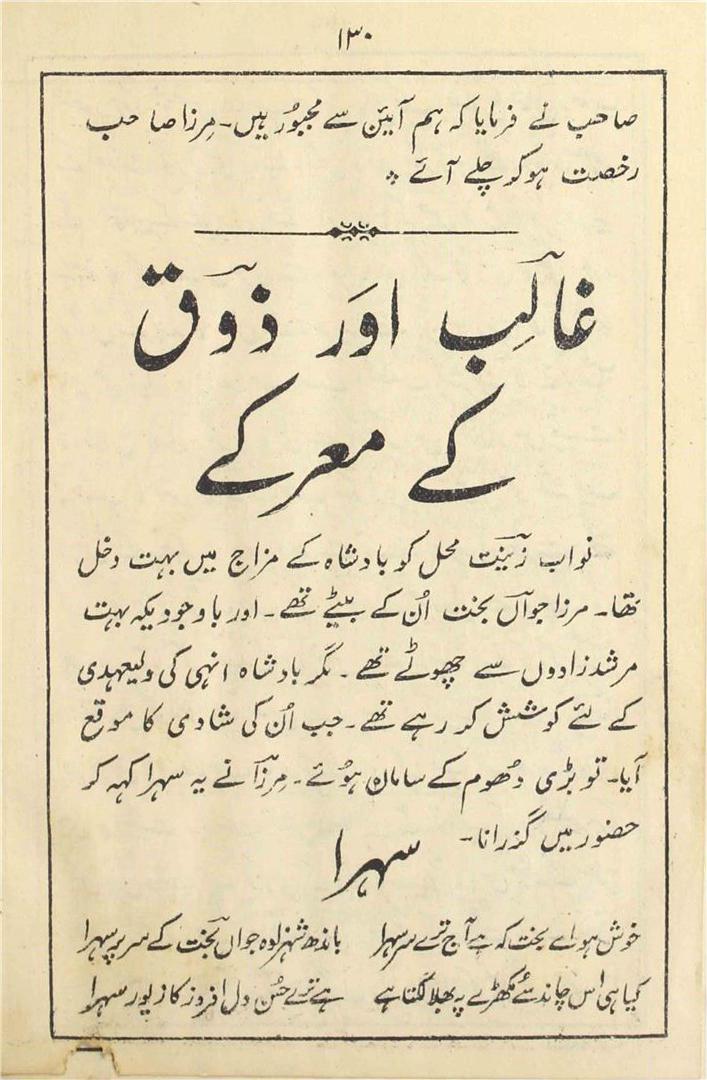 ۱۳۰
صاحب نے فرمایا کہ ہم آئین سے مجبُور ہیں۔ مِرزا صاحب
رخصت ہوکر چلے آئے ؞
غالِب اور ذوق
کے معرکے
نواب زینت محل کو بادشاہ کے مزاج میں بہت دخل
تھا۔ مرزا جواں بخت اُن کے بیٹے تھے۔ اور باوجودیکہ بہت
مرشد زادوں سے چھوٹے تھے۔ مگر بادشاہ انہی کی ولیعہدی
کے لئے کوشش کر رہے تھے۔ جب اُن کی شادی کا موقع
آیا۔ تو بڑی دھُوم کے سامان ہوُئے۔ مِرزا نے یہ سہرا کہہ کر
حضور میں گذرانا۔
سہرا
خوش ہو اے بخت کہ ہے آج ترے سر سہرا باندھ شہزادہ جواں بخت کے سر پر سہرا
کیا ہی اس چاند سے مُکھڑے پہ بھلا لگتا ہے ہے ترے حُسن دل افروز کا زیور سہرا